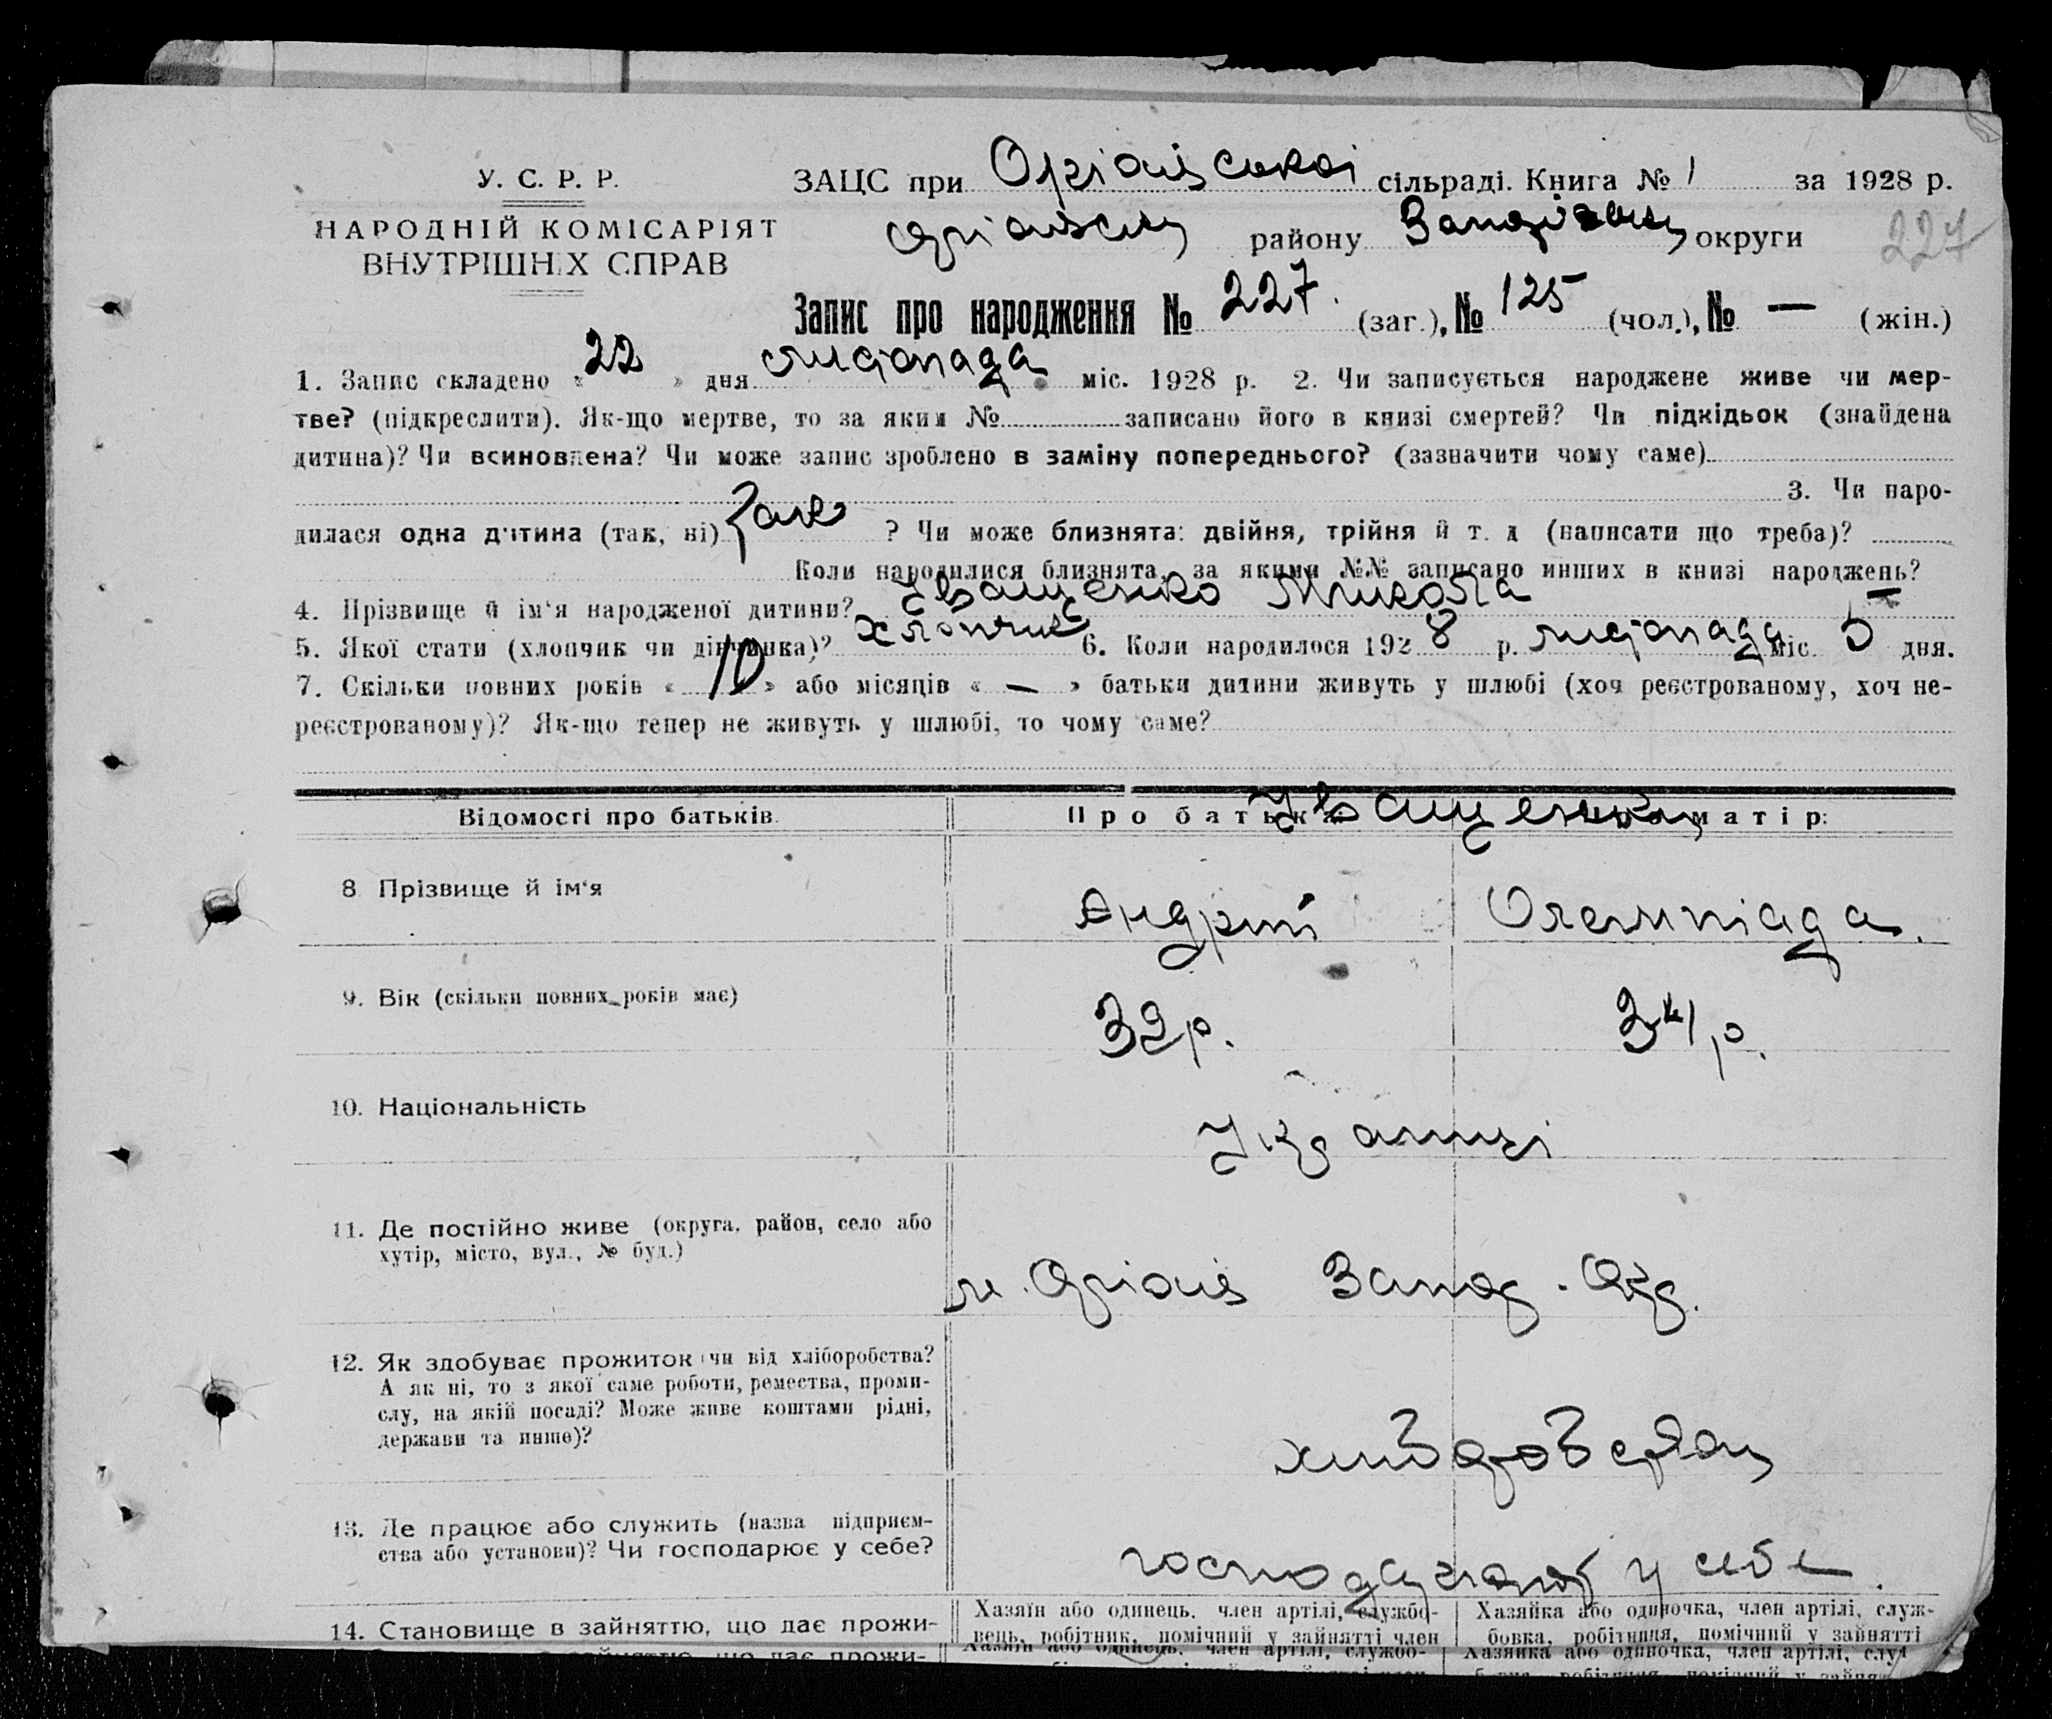 У. С. Р. Р.
НАРОДНІЙ КОМІСАРІЯТ
ВНУТРІШНІХ СПРАВ
ЗАЦС при Оріхівській сільраді. Книга № 1 за 1928 р.
району округи
227
Запис про народження № 227. (заг.), № 125 (чол.), № — (жін.)
1. Запис складено « 22 » дня листопада міс. 1928 р. 2. Чи записується народжене живе чи мер-
тве? (підкреслити). Як-що мертве, то за яким № записано його в книзі смертей? Чи підкідьок (знайдена
дитина)? Чи всиновлена? Чи може запис зроблено в заміну попереднього? (зазначити чому саме)
3. Чи наро-
дилася одна дитина (так, ні) ? Чи може близнята: двійня, трійня й т. д (написати що треба)?
Коли народилися близнята, за якими №№ записано инших в книзі народжень? —
4. Прізвище й ім‘я народженої дитини? Іващенко Микола
5. Якої стати (хлопчик чи дівчинка)? хлопчик 6. Коли народилося 1928 р. листопада міс. 5 дня.
7. Скільки повних років « 10 » або місяців « — » батьки дитини живуть у шлюбі (хоч реєстрованому, хоч не-
реєстрованому)? Як-що тепер не живуть у шлюбі, то чому саме?
Відомості про батьків
Про батька: матір:
Іващенки
8 Прізвище й ім‘я Андрій Олемпіада.
9. Вік (скільки повних років має) 32 р. 31 р.
10. Національність
11. Де постійно живе (округа, район, село або
хутір, місто, вул., № буд.)
м. Оріхів
12. Як здобуває прожиток чи від хліборобства?
А як ні, то з якої саме роботи, ремества, проми-
слу, на якій посаді? Може живе коштами рідні,
держави та инше)?
13. Де працює або служить (назва підприєм-
ства або установи)? Чи господарює у себе?
у себе.
14. Становище в зайняттю, що дає прожи-
Хазяїн або одинець, член артілі, службо-
вець, робітник, помічний у зайнятті член
Хазяйка або одиночка, член артілі, служ-
бовка, робітниця, помічний у зайнятті
Хазяїн або одинець, член артілі, службо-
Хазяйка або одиночка, член артілі, слу